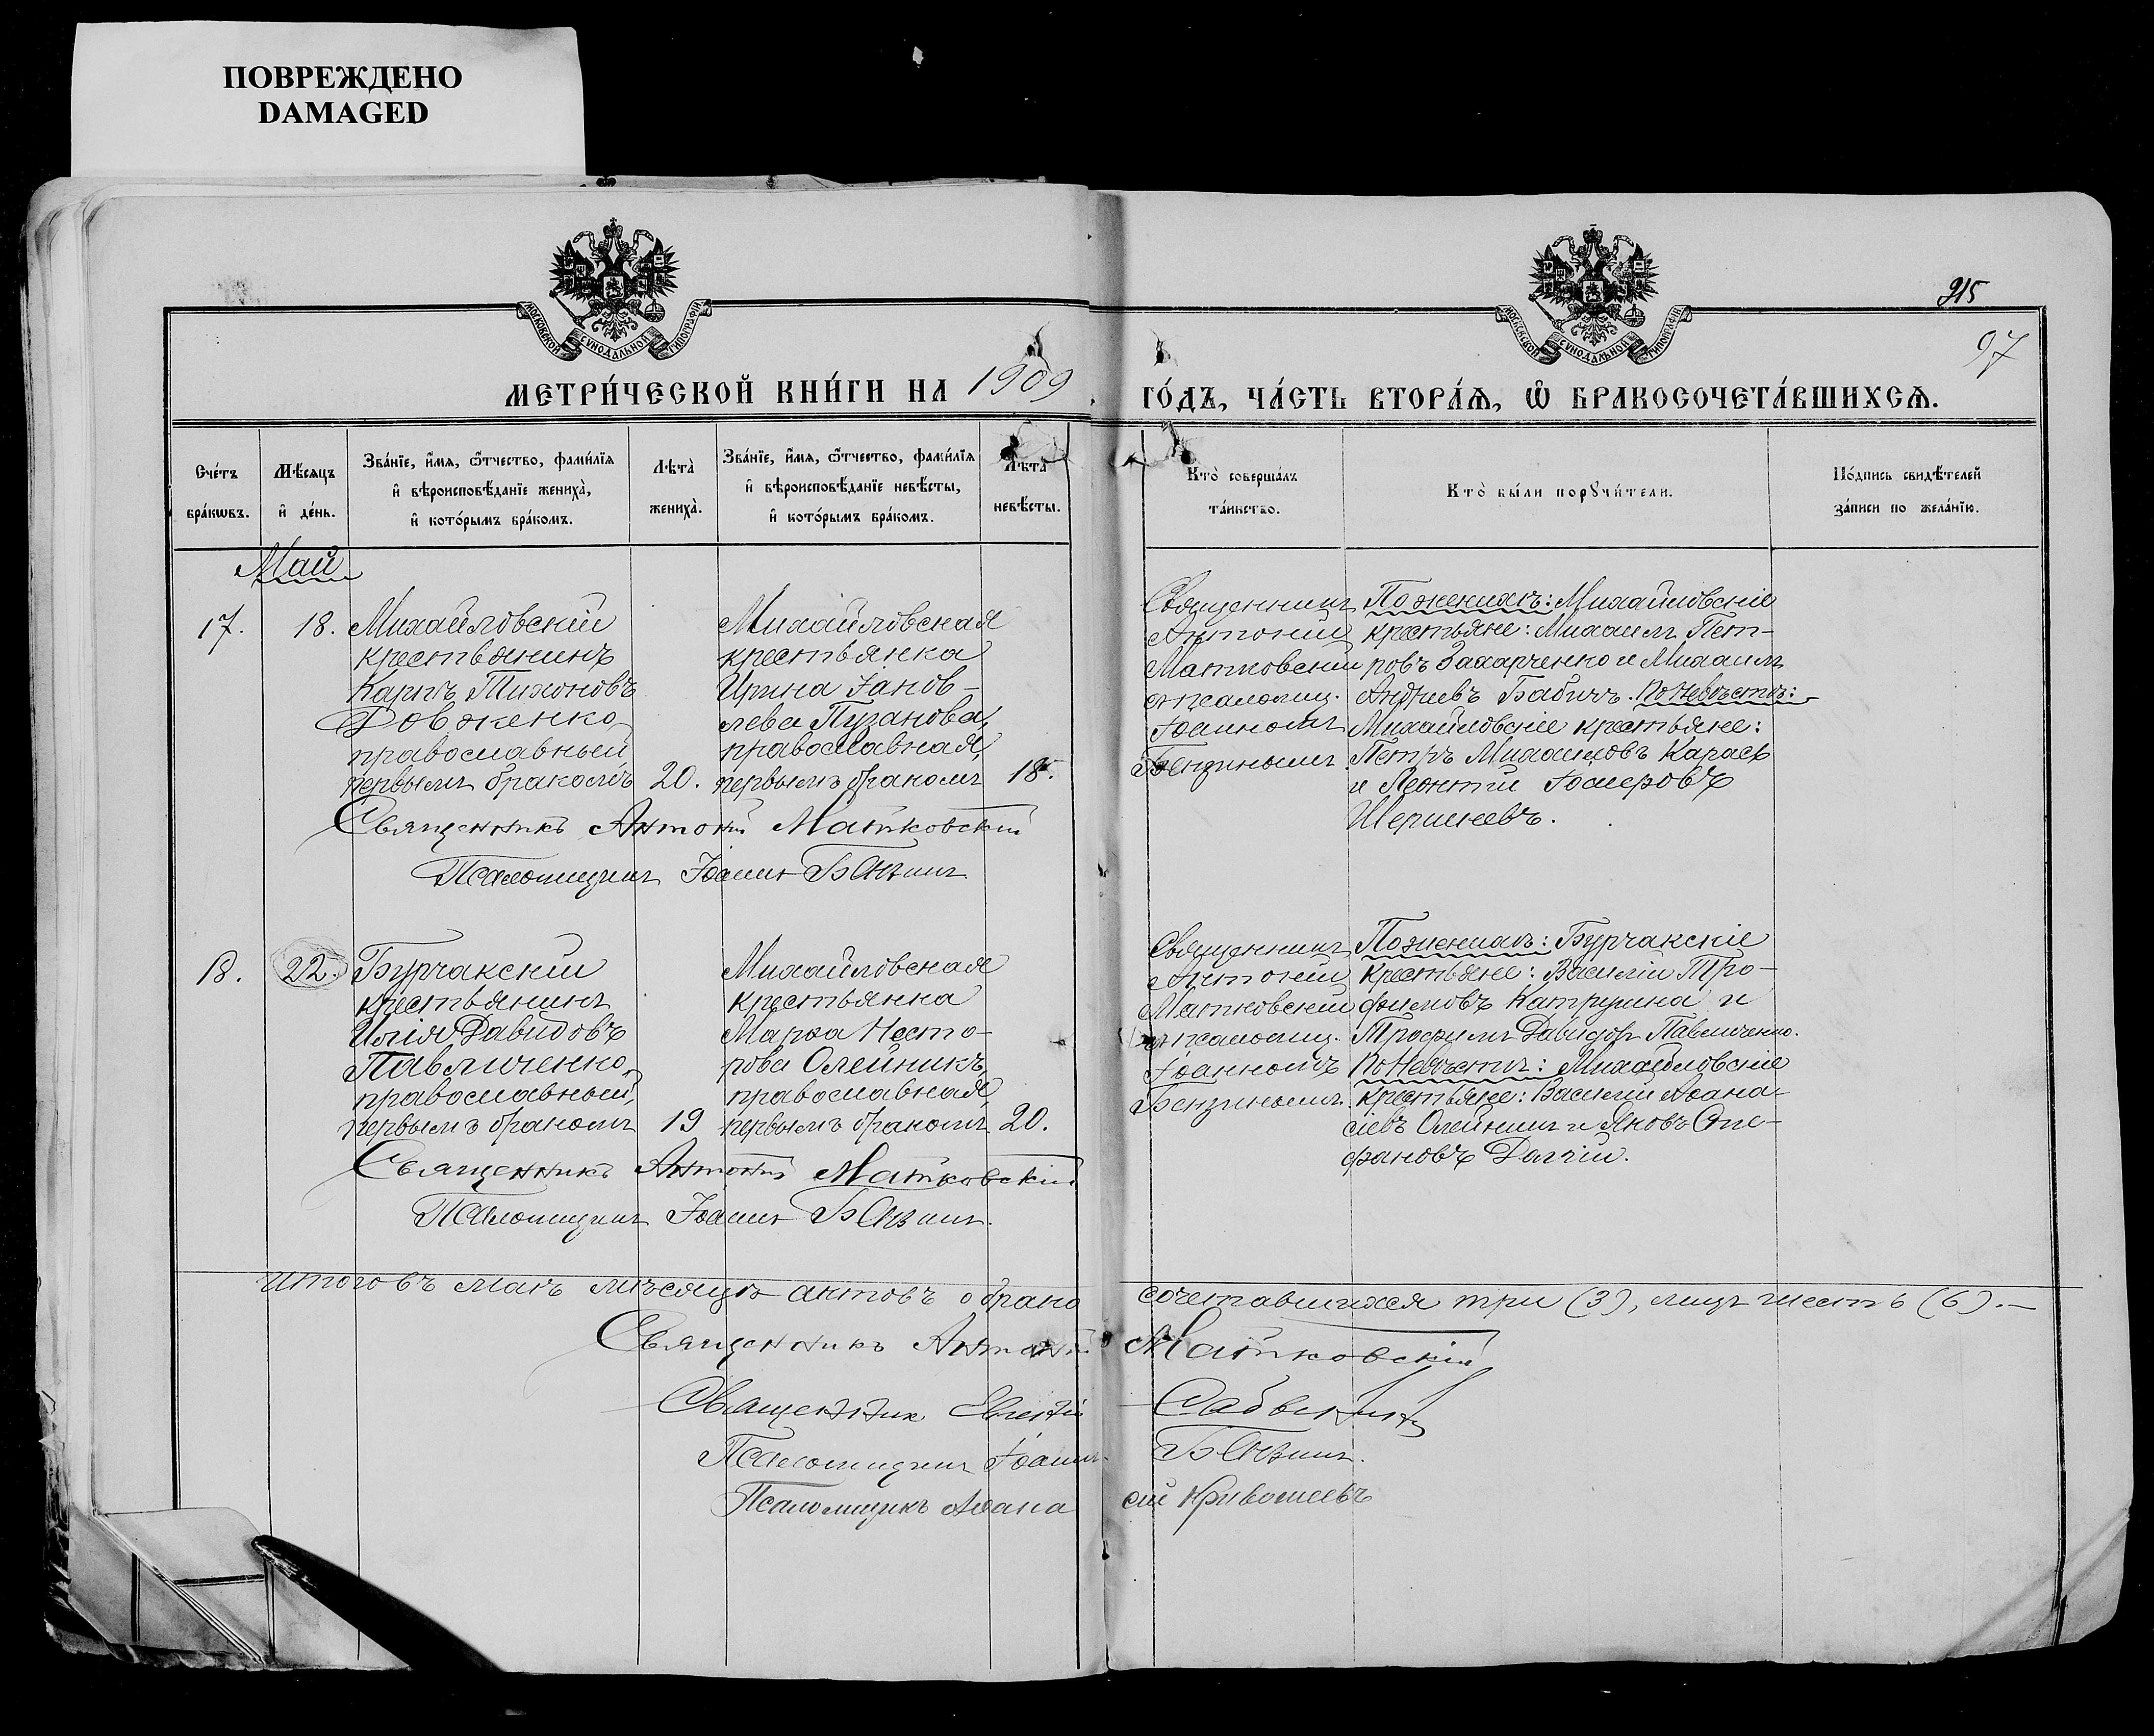 ПОВРЕЖДЕНО
DAMAGED
МОСКОВСКОЙ СѴНОДАЛЬНОЙ ТИПОГРАФІИ
МОСКОВСКОЙ СѴНОДАЛЬНОЙ ТИПОГРАФІИ
315
97
МЕТРИ́ЧЕСКОЙ КНИ́ГИ НА 1909 ГО́ДЪ, ЧА́СТЬ ВТОРА́Ѧ, Ѡ҆ БРАКОСОЧЕТА́ВШИХСѦ.
Сче́тъ бра́кѡвъ.
Мѣ́сяцъ и҆ де́нь.
Зва́нїе, и҆́мѧ, ѻ҆́тчество, фами́лїѧ
и҆ вѣроисповѣ́данїе жениха̀,
и҆ кото́рымъ бра́комъ.
Лѣта̀ жениха̀.
Зва́нїе, и҆́мѧ, ѻ҆́тчество, фами́лїѧ
и҆ вѣроисповѣ́данїе невѣ́сты,
и҆ кото́рымъ бра́комъ.
Лѣта̀ невѣ́сты.
Кто̀ соверша́лъ
та́инство.
Кто̀ бы́ли порꙋчи́тели.
По́дпись свидѣ́телей
за́писи по жела́нїю.
Май
17.
18.
Михайловскій
крестьянинъ
Карпъ Тихоновъ
Довженко,
православный
первымъ бракомъ
20.
Михайловская
крестьянка
Ирина Іаков-
лева Пузанова,
православная,
первымъ бракомъ
18.
Священникъ
Антоній
Матковскій
съ псаломщ.
Іоанномъ
Бензинымъ.
По женихѣ: Михайловскіе
крестьяне: Михаилъ Пет-
ровъ Захарченко и Михаилъ
Андреевъ Бабичъ. По невѣстѣ:
Михайловскіе крестьяне:
Петръ Михаиловъ Карась
и Леонтій
Священникъ Антоній Матковскій
Псаломщикъ Іоаннъ Бензинъ
18.
22.
Бурчакскій
крестьянинъ
Илія Давидовъ
Павличенко,
православный,
первымъ бракомъ
19
Михайловская
крестьянка
Марѳа Несто-
рова Олейникъ,
православная,
первымъ бракомъ
20.
Священникъ
Антоній
Матковскій
съ псаломщ.
Іоанномъ
Бензинымъ.
По женихѣ: Бурчакскіе
крестьяне: Василій Тро-
фимовъ и
Трофимъ Давидовъ Павличенко.
По невѣстѣ: Михайловскіе
крестьяне: Василій Аѳана-
сіевъ Олейникъ и Яковъ Сте-
фановъ Долгій.
Священникъ Антоній Матковскій
Псаломщикъ Іоаннъ Бензинъ.
Итого въ маѣ мѣсяцѣ актовъ о бракосочетавшихся три (3), лицъ шесть (6).—
Священникъ Антоній Матковскій
Священникъ
Псаломщикъ Іоаннъ Бензинъ.
Псаломщикъ Аѳанасій Кривошеевъ